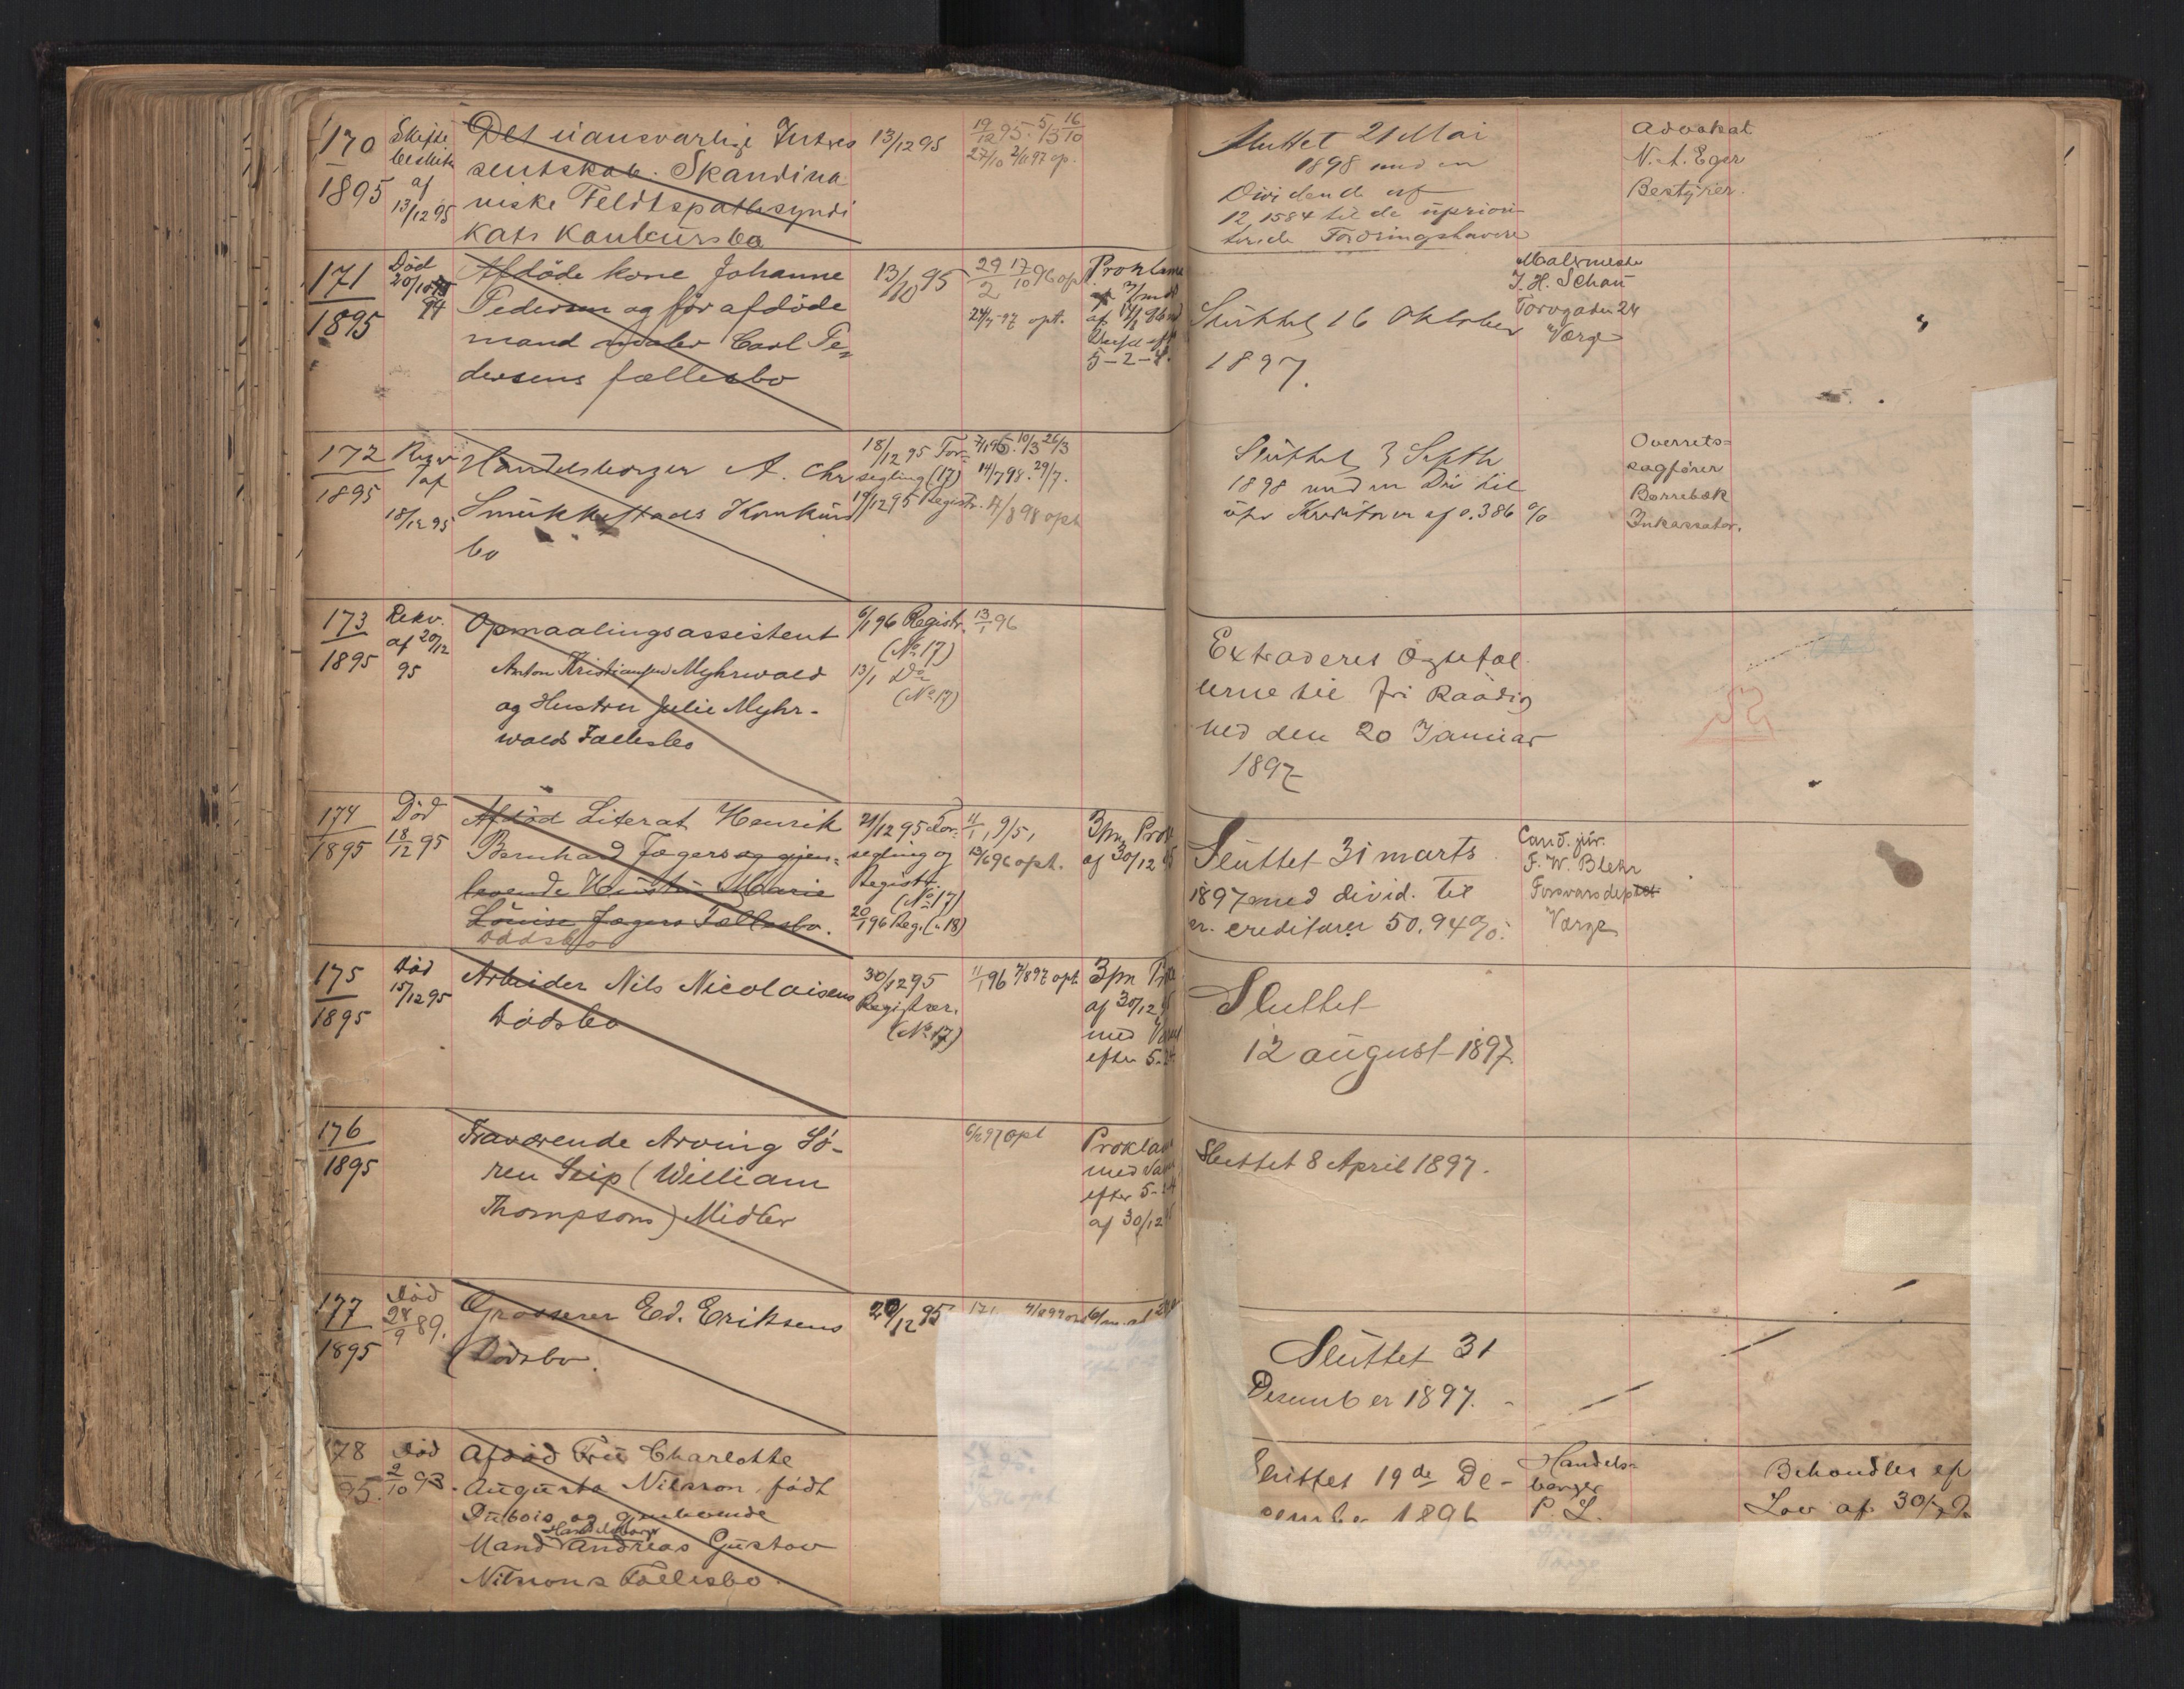 170
1895
Skifte
beslut
af
13/12 95
Det uansvarlige Intres
sentskab. Skandina
viske Feldtspathsyndi
kats Konkursbo
13/12 95
19/12 95. 5/3 16/10
27/10 2/11 97 op.
Sluttet 21 Mai
1898 med en
Dividende af
12,1584 til de upriori-
terede Fordringshavere
Advokat
N. A. Eger
Bestyrer.
171
1895
Död
20/10
94
Afdöde kone Johanne
Pedersen og før afdöde
mand maler Carl Pe-
dersens fællesbo
13/10 95
29/2 17/10 96 opt.
24/5 97 opt.
Proklama
5-2-4.
Sluttet 16 Oktober
1897.
Malermester
J. H. Schau
Torvgaden 24
Værge
172
1895
Rekv
af
18/12 95
Handelsborger A. Chr
Smukkestads Konkurs
bo
18/12 95 For-
segling (17)
19/12 95 Registr.
7/1 96. 10/3 26/3
14/7 98. 29/7.
17/8 98 opt
Sluttet 3 Septb
1898 med en Div til
upr Kreditorer af 0.386 %
Overrets-
sagfører
Borrebæk
Inkassator.
173
1895
Rekv.
af 20/12
95
Opmaalingsassistent
Anton Kristiansen Myhrwold
og Hustru Julie Myhr-
wolds Fællesbo
6/1 96 Registr.
(No 17)
13/1 Do
(No 17)
13/1 96
Extraderes Ægtefol
kerne til fri Raadig
hed den 20 Januar
1897
174
1895
Död
18/12 95
Afdöd Literat Henrik
Bernhard Jægers og gjen-
levende Hustru Marie
Louise Jægers Fællesbo.
Dødsbo
21/12 95 For-
segling og
Registr.
(No 17)
20/1 96 Reg. (" 18)
11/1, 9/5,
13/6 96 opt.
3 pm Prok
af 30/12 95
Sluttet 31 marts
1897 med divid. til
cr. creditorer 50.94 %.
Cand. jur.
F. W. Blehr
Forsvarsdeptet
Værge
175
1895
Död
15/12 95
Arbeider Nils Nicolaisens
Dödsbo
30/12 95
Registrer.
(No 17)
11/1 96 7/8 97 opt.
3 pm
af 30/12
med
efter 5-
Sluttet
12 august 1897.
176
1895
Fraværende Arving Sö-
ren Seip (William
Thompsons) Midler
6/2 97 opt
Proklam
med
efter 5-
af 30/12
Sluttet 8 April 1897.
177
1895
Död
24/9 89.
Grosserer Ed. Eriksens
Dödsbo.
20/12 95
Sluttet 31
Desember 1897.
178
95.
Död
2/10 93.
Afdöd Frü Charlotte
Augusta Nilsson födt
Dubois og gjenlevende
Handelsborger
Mand Andreas Gustav
Nilssons Fællesbo.
Sluttet 19de De-
cember 1896
Handels-
borger
P. L.
Værge
Behandles ef
Lov af 30/7